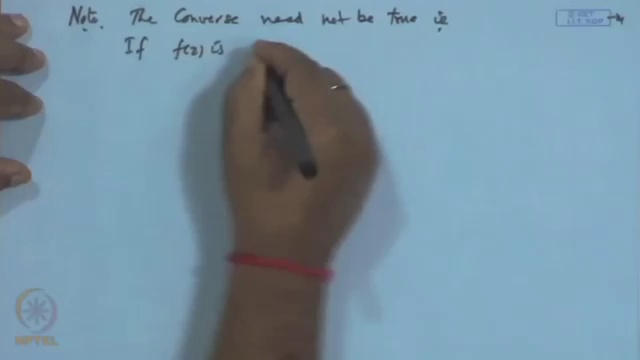 Note. The Converse need not be true ie
If f(z) is
NPTEL